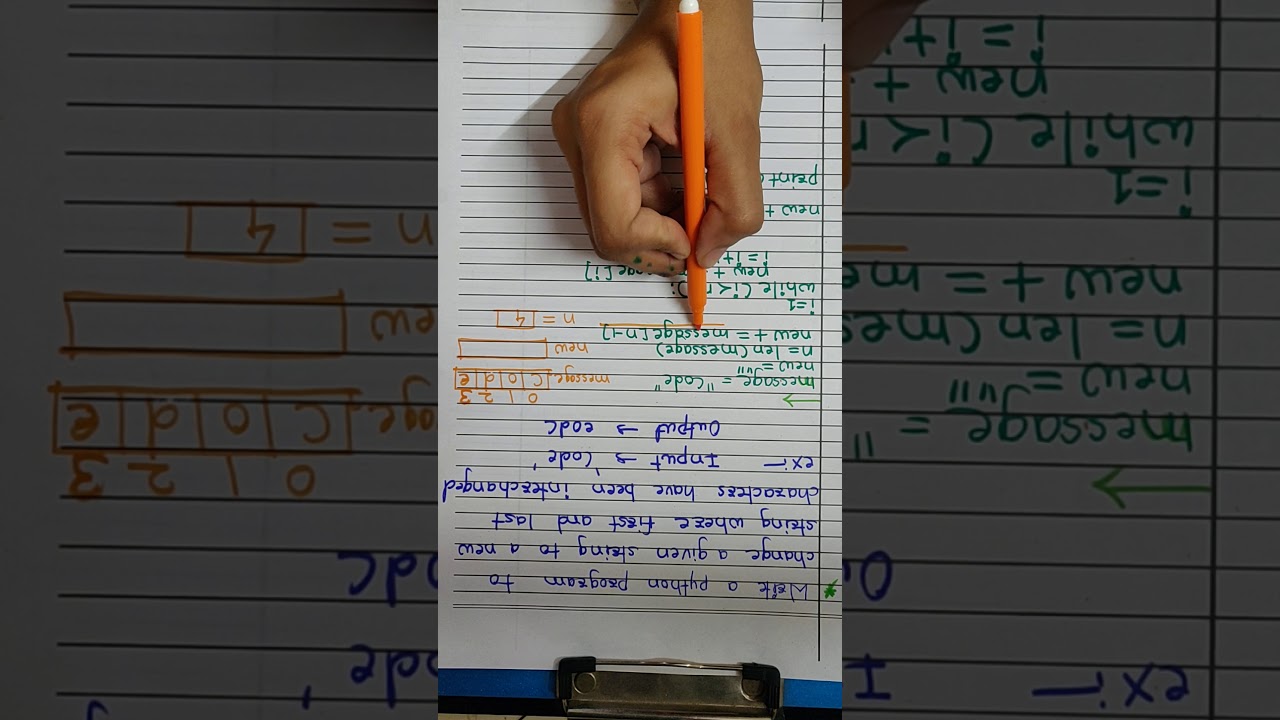 * Write a python program to
change a given string to a new
string where first and last
characters have been interchanged
ex:- Input → 'Code'
Output → eodc
0 1 2 3
message = "Code" message C o d e
new = ""
n = len(message) new
new + = message[n-1] n = 4
i=1
while (i<
new +
i = i+
new +
print